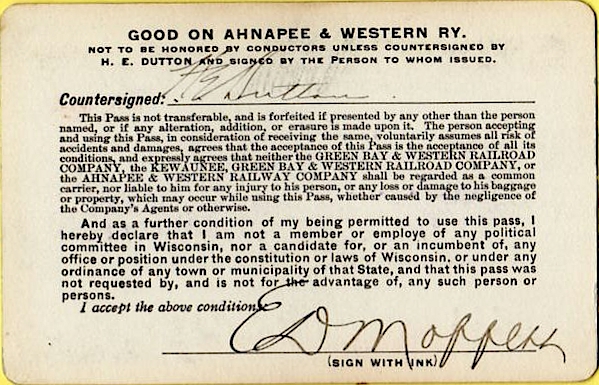 GOOD ON AHNAPEE & WESTERN RY.
NOT TO BE HONORED BY CONDUCTORS UNLESS COUNTERSIGNED BY
H. E. DUTTON AND SIGNED BY THE PERSON TO WHOM ISSUED.
Countersigned: H E Dutton
This Pass is not transferable, and is forfeited if presented by any other than the person
named, or if any alteration, addition, or erasure is made upon it. The person accepting
and using this Pass, in consideration of receiving the same, voluntarily assumes all risk of
accidents and damages, agrees that the acceptance of this Pass is the acceptance of all its
conditions, and expressly agrees that neither the GREEN BAY & WESTERN RAILROAD
COMPANY, the KEWAUNEE, GREEN BAY & WESTERN RAILROAD COMPANY, or
the AHNAPEE & WESTERN RAILWAY COMPANY shall be regarded as a common
carrier, nor liable to him for any injury to his person, or any loss or damage to his baggage
or property, which may occur while using this Pass, whether caused by the negligence of
the Company's Agents or otherwise.
And as a further condition of my being permitted to use this pass, I
hereby declare that I am not a member or employe of any political
committee in Wisconsin, nor a candidate for, or an incumbent of, any
office or position under the constitution or laws of Wisconsin. or under any
ordinance of any town or municipality of that State, and that this pass was
not requested by, and is not for the advantage of, any such person or
persons.
I accept the above conditions.
E D
(SIGN WITH INK)